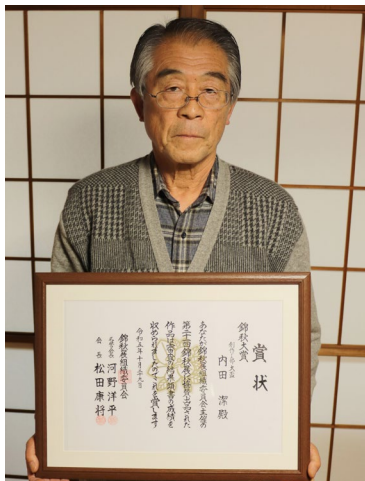 賞状
錦秋大賞
内田 潔 殿
あなたが錦秋展組織委員会主催の
第二十回錦秋展に搬出品された
作品は審査の結果頭書の成績を
収められましたのでこれを賞します
令和五年十月二十九日
錦秋展組織委員会
名誉会長 河野洋平
会長 松田康将